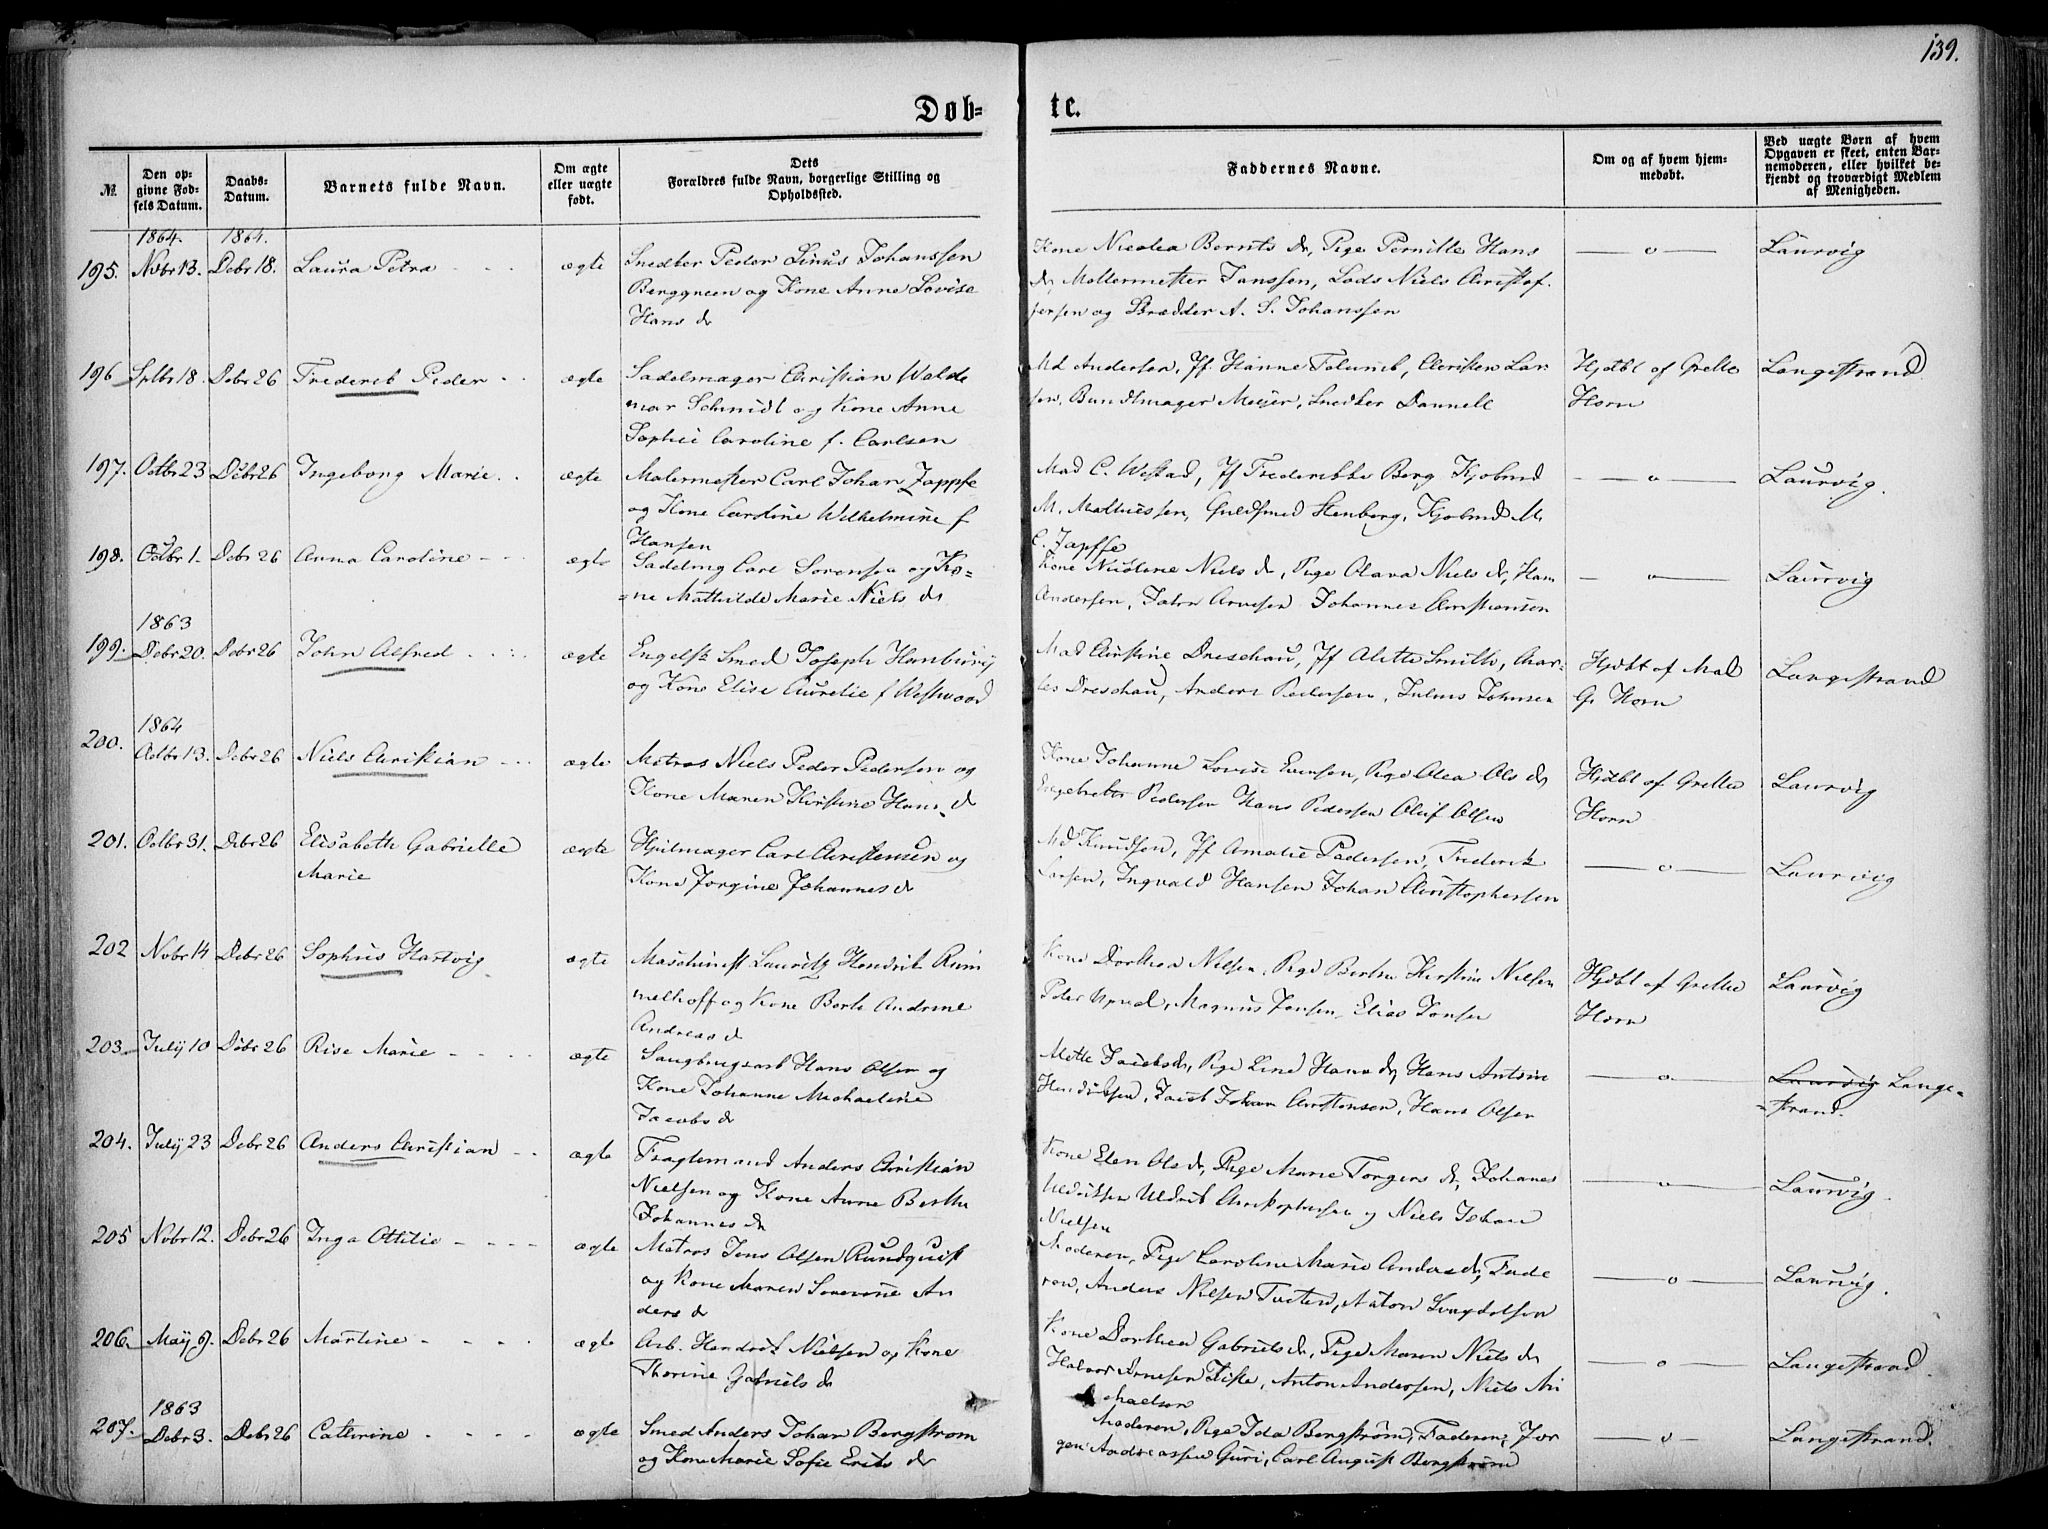 139.
Døb=
te.
№
Den op-
givne Fød-
sels Datum.
Daabs-
Datum.
Barnets fulde Navn.
Om ægte
eller uægte
født.
Dets
Forældres fulde Navn, borgerlige Stilling og
Opholdssted.
Faddernes Navne.
Om og af hvem hjem-
medøbt.
Ved uægte Børn af hvem
Opgaven er skeet, enten Bar-
nemoderen, eller hvilket be-
kjendt og troværdigt Medlem
af Menigheden.
1864. 1864.
195. Nvbr 13. Debr 18. Laura Petra ægte Snedker Peder Linus Johanssen
Berggreen og Kone Anne Lovise
Hans d
Kone Nicolea Bernts d, Pige Pernille Hans
d, Møllermester Janssen, Lods Niels Christof-
fersen og A. S. Johanssen
— o — Laurvig
196 Sptbr 18. Debr 26 Frederik Peder ægte Sadelmager Christian Walde
mar Schmidt og Kone Anne
Sophie Caroline f. Carlsen
Md Andersen, Jf Hanne Christen Lar-
sen, Bundtmager Meyer, Snedker Dannell
Hjdbt af Grethe
Horn
Langestrand
197. Octbr 23 Debr 26 Ingeborg Marie ægte Malermester Carl Johan Zappfe
og Kone Caroline Wilhelmine f
Hansen
Mad C. Westad, Jf Frederikke Berg Kjøbmd
M. Mathiessen, Guldsmed Stenberg, Kjøbmd M.
C. Zapffe
— o — Laurvig.
198. Octbr 1. Debr 26 Anna Caroline ægte Sadelmg Carl Sørensen og Ko=
=ne Mathilde Marie Niels d
Kone Nicoline Niels d, Pige Olava Niels d, Hans
Andersen, Johannes Christiansen
— o — Laurvig
1863
199. Debr 20. Debr 26 John Alfred ægte Engelsk Smed Joseph Hanbury
og Kone Elise Aurelie f Westwood
Mad Christine Dreschau, Jf Alette Smith, Char-
les Dreschau, Anders Pedersen, Julius Johnsen
Hjdbt af Mad
G. Horn
Langestrand
1864
200. Octbr 13. Debr 26 Niels Christian ægte Matros Niels Peder Pedersen og
Kone Maren Kirstine Hans d
Kone Johanne Lovise Evensen, Pige Olea Ols d,
Engebreth Pedersen Hans Pedersen Oluf Olsen
Hjdbt af Grethe
Horn
Laurvig
201. Octbr 31. Debr 26 Elisabeth Gabrielle
Marie
ægte Hjulmager Carl Christensen og
Kone Jørgine Johannes d
Md Knudsen, Jf Amalie Pedersen, Frederik
Larsen, Ingvald Hansen Johan Christophersen
— o — Laurvig
202 Nvbr 14 Debr 26 Sophus Hartvig ægte Maschinist Lauritz Hendrik Rum
melhoff og Kone Berte Andrine
Andreas d
Kone Dorthea Nilsen, Pige Berthe Kirstine Nielsen
Peder Magnus Jensen, Elias Jonsen
Hjdbt af Grethe
Horn
Laurvig
203. July 10 Debr 26 Rise Marie ægte Saugbrugsarb Hans Olsen og
Kone Johanne Michaeline
Jacobs d
Mette Jacobs d, Pige Line Hans d, Hans Anton
Hendriksen, Jacob Johan Christensen, Hans Olsen
— o — Laurvig Lange-
=strand.
204. July 23 Debr 26 Anders Christian ægte Fragtemand Anders Christian
Nielsen og Kone Anne Berthe
Johannes d
Kone Elen Ols d, Pige Marie Torgers d, Johanes
Uldriksen Uldrik Christophersen og Niels Johan
Nielsen
— o — Laurvig.
205 Nvbr 12. Debr 26 Inga Ottilie ægte Matros Jens Olsen Rundquist
og Kone Maren Severine An
ders d
Moderen, Pige Caroline Marie Anders d, Fade
ren, Anders Nielsen
— o — Laurvig.
206. May 9. Debr 26 Martine ægte Arb. Hendrik Nielsen og Kone
Thorine Gabriels d
Kone Dorthea Gabriels d, Pige Maren Niels d
Halvor Arnesen Anton Andersen, Niels Mi
chaelsen
— o — Langestrand
1863
207. Debr 3. Debr 26 Cathrine ægte Smed Anders Johan Bergstrøm
og Kone Marie Sofie Eriks d
Moderen, Pige Ida Bergstrøm, Faderen, Jør
gen Andreassen Guri, Carl August Bergstrøm
— o — Langestrand.